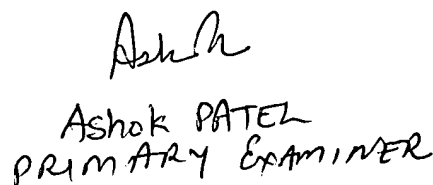 Ashok PATEL
PRIMARY EXAMINER